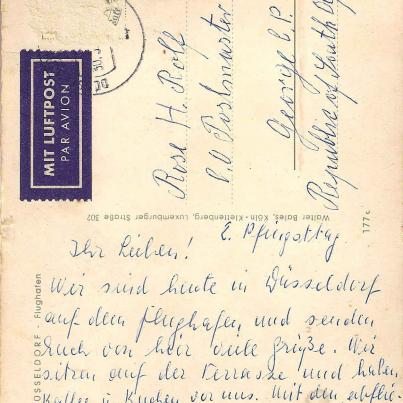 MIT LUFTPOST
PAR AVION
Rose H. Rolf
c.o Postmaster
George C.P.
Republic of South
Walter Bales, Köln-Klettenberg, Luxemburger Straße 302
177c
ÜSSELDORF Flughafen
Pfingsttag
Ihr Lieben!
Wir sind heute in Düsseldorf
auf dem Flughafen und senden
Euch von hier viele Grüße. Wir
sitzen auf der Terrasse und haben
Kaffee u Kuchen vor uns. Mit den abflie-